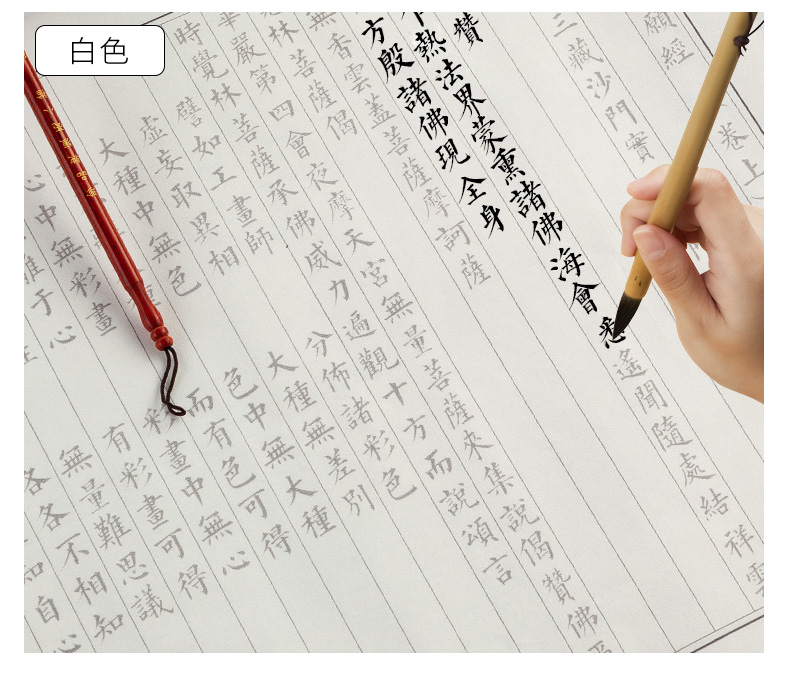 白色
卷上
願經
三藏沙門實
讚
熱法界蒙熏諸佛海會悉遙聞隨處結祥雲
方殷諸佛現全身
無香雲蓋菩薩摩訶薩
林菩薩偈
華嚴第四會夜摩天宮無量菩薩來集說偈讚佛
時覺林菩薩承佛威力遍觀十方而說頌言
譬如工畫師 分佈諸彩色
虛妄取異相 大種無差別
大種中無色 色中無大種
種 而有色可得
心中無彩畫 彩畫中無心
離于心 有彩畫可得
無量難思議
各各不相知
知自心